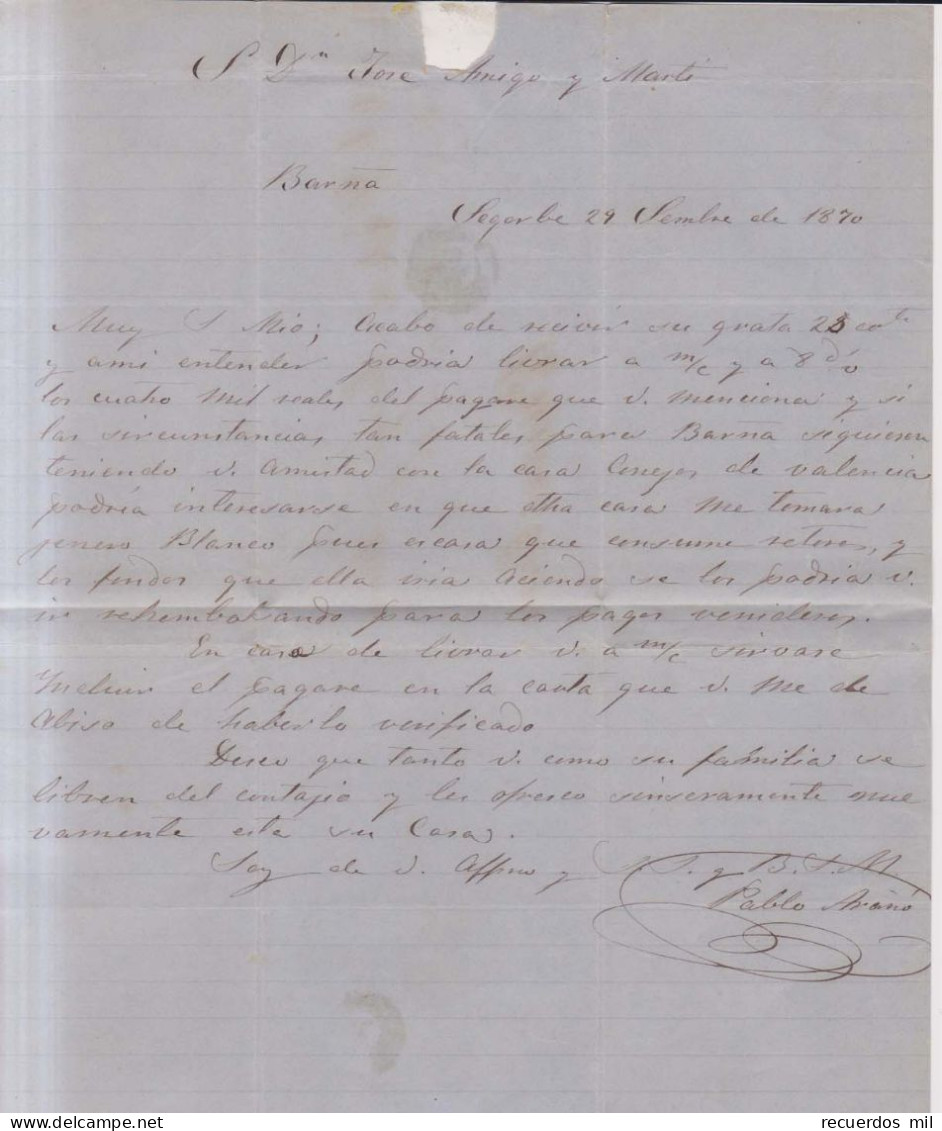 S Dn Jose Amigo y Marti
Barna
Segorbe 29 Sembre de 1870
Muy S Mio; Acabo de recivir su grata 25 corte
y ami entender podria livrar a m/c y a 8 d/v
los cuatro mil reales del pagare que v. menciona y si
las sircunstancias tan fatales para Barna siguiesen
teniendo v. Amistad con la casa Conejos de valencia
podria interesarse en que dha casa me tomara
jenero Blanco pues es casa que consume retores, y
los fondos que ella iria Aciendo se los podria v.
ir rehembolsando para los pagos venideros.
En caso de livrar v. a m/c sirvase
Incluir el pagare en la carta que v. me de
Abiso de haberlo verificado
Deseo que tanto v. como su familia se
libren del contajio y les ofresco sinseramente nue
vamente esta su Casa.
Soy de v. Affmo y S. S. q B. S. M.
Pablo Arañó
recuerdos mil